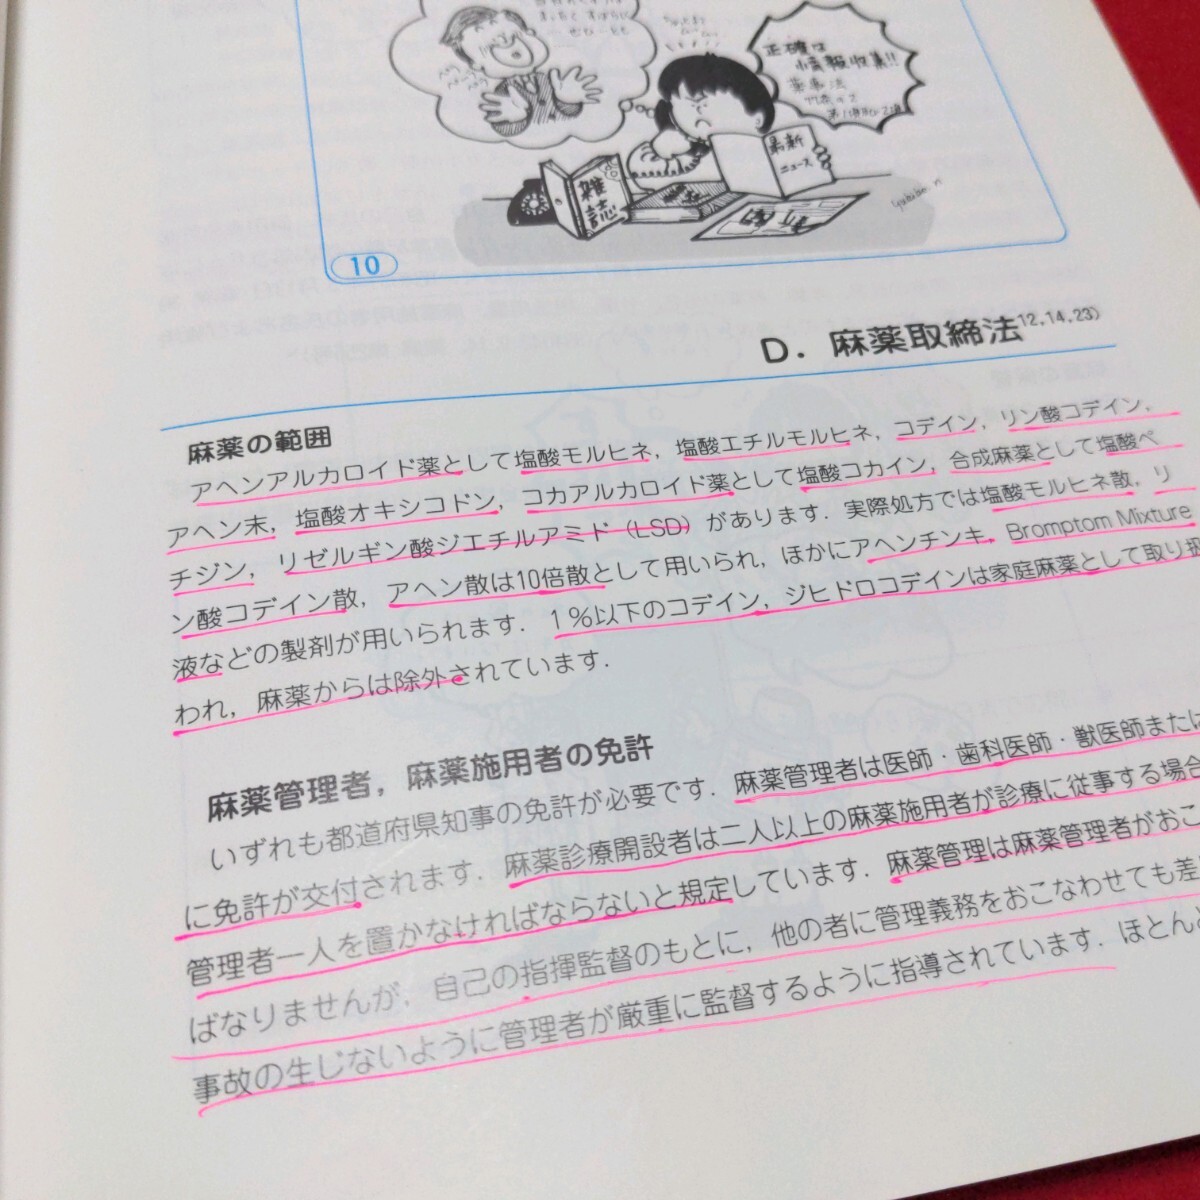 正確な
情報収集!!
薬事法
最新
ニュース
雑誌
10
D．麻薬取締法12,14,23)
麻薬の範囲
アヘンアルカロイド薬として塩酸モルヒネ，塩酸エチルモルヒネ，コデイン，リン酸コデイン，
アヘン末，塩酸オキシコドン，コカアルカロイド薬として塩酸コカイン，合成麻薬として塩酸ペ
チジン，リゼルギン酸ジエチルアミド（LSD）があります．実際処方では塩酸モルヒネ散，リ
ン酸コデイン散，アヘン散は10倍散として用いられ，ほかにアヘンチンキ，Bromptom Mixture
液などの製剤が用いられます．1％以下のコデイン，ジヒドロコデインは家庭麻薬として取り扱
われ，麻薬からは除外されています．
麻薬管理者，麻薬施用者の免許
いずれも都道府県知事の免許が必要です．麻薬管理者は医師・歯科医師・獣医師または
に免許が交付されます．麻薬診療開設者は二人以上の麻薬施用者が診療に従事する場合
管理者一人を置かなければならないと規定しています．麻薬管理は麻薬管理者がおこ
ばなりませんが，自己の指揮監督のもとに，他の者に管理義務をおこなわせても差
事故の生じないように管理者が厳重に監督するように指導されています．ほとん